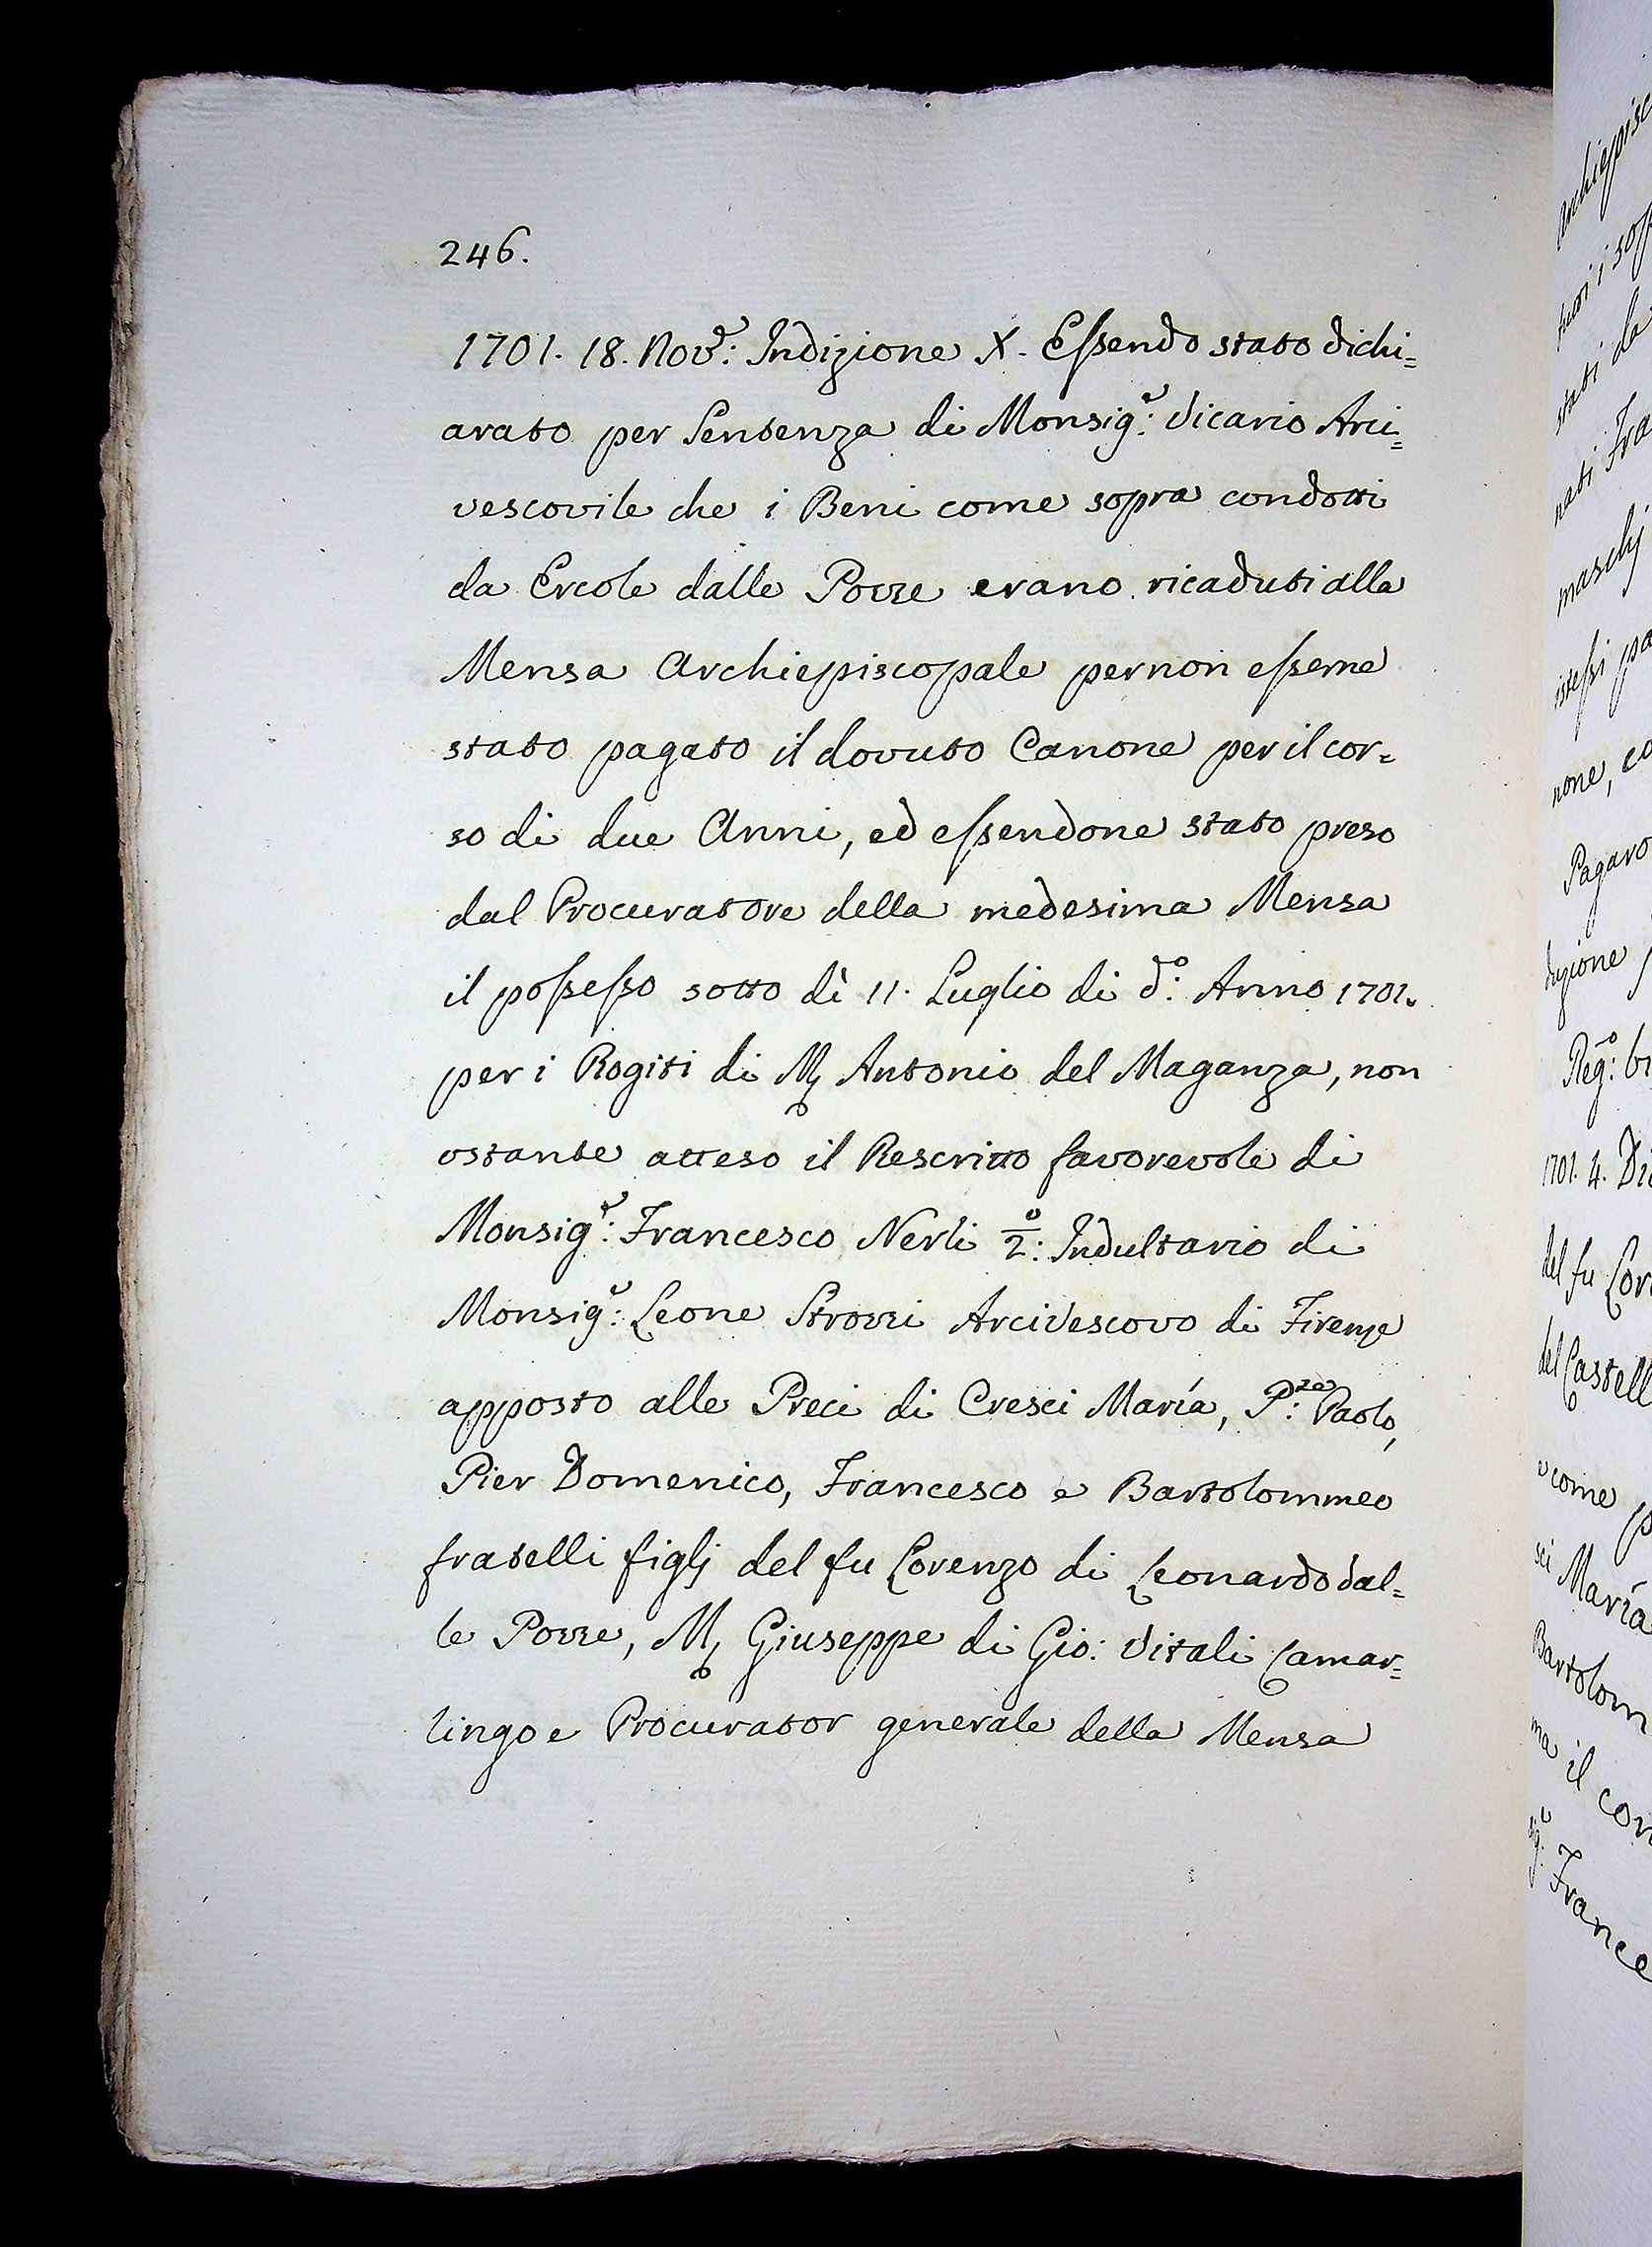 246.
1701. 18. Nov.e: Indizione X. Essendo stato dichi=
arato per Sentenza di Monsig.r: Vicario Arci=
vescovile che i Beni come sopra condotti
da Ercole dalle Pozze erano ricaduti alla
Mensa Archiepiscopale per non esserne
stato pagato il dovuto Canone per il cor=
so di due Anni, ed essendone stato preso
dal Procuratore della medesima Mensa
il possesso sotto dì 11. Luglio di d.o: Anno 1701.
per i Rogiti di M Antonio del Maganza, non
ostante atteso il Rescritto favorevole di
Monsig.r: Francesco Nerli 2.o: Indultario di
Monsig.r: Leone Strozzi Arcivescovo di Firenze
apposto alle Preci di Cresci María, P.re: Paolo,
Pier Domenico, Francesco e Bartolommeo
fratelli figlj del fu Lorenzo di Leonardo dal=
le Pozze, M Giuseppe di Gio: Vitali Camar=
lingo e Procurator generale della Mensa
none, co
Pagaro
Reg.o:
1701. 4.
del fu Lor
del Castell
come
María
Bartolom
il con
France